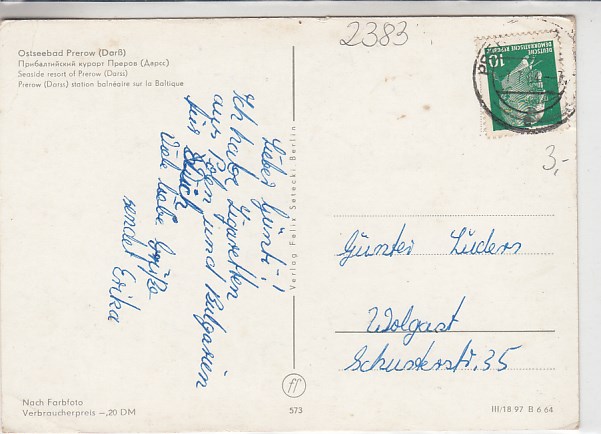 2383
Ostseebad Prerow (Darß)
Прибалтийский курорт Преров (Дарсс)
Seaside resort of Prerow (Darss)
Prerow (Darss) station balnéaire sur la Baltique
10
DEUTSCHE
DEMOKRATISCHE REPUBLIK
3,-
Lieber Günti!
Ich habe Zigaretten
aus Polen und Bulgarien
für Dich
Viele liebe Grüße
sendet Erika
Verlag Felix Setecki Berlin
Günter Lüders
Wolgast
Schusterstr. 35
Nach Farbfoto
Verbraucherpreis –,20 DM
ff
573
III/18.97 B 6.64